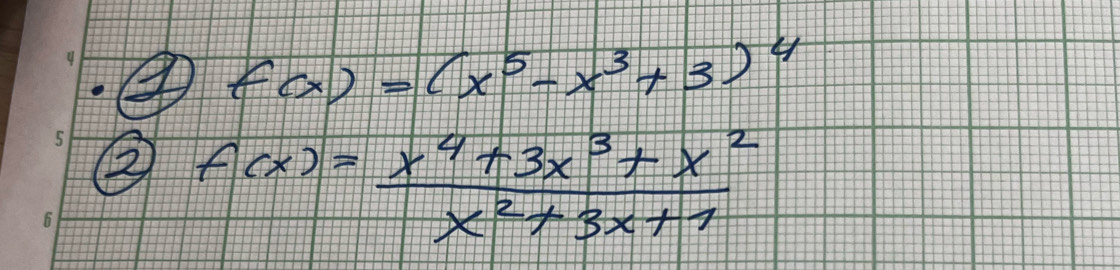 4
• ① f(x) = (x⁵ - x³ + 3)⁴
5
② f(x) = x⁴ + 3x³ + x²
x² + 3x + 1
6